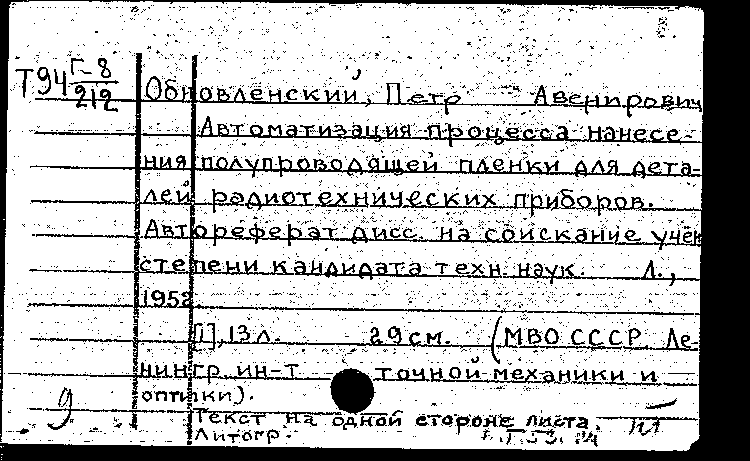 Т94 Г-8/212
Обновленский, Петр Авенирович
Автоматизация процесса нанесе-
ния полупроводящей пленки для дета-
лей радиотехнических приборов.
Автореферат дисс. на соискание учен
степени кандидата техн. наук. Л.,
1952
[1], 13 л. 29 см. (МВО СССР. Ле-
нингр. ин-т точной механики и
оптики).
Текст на одной стороне листа.
Литогр.
9